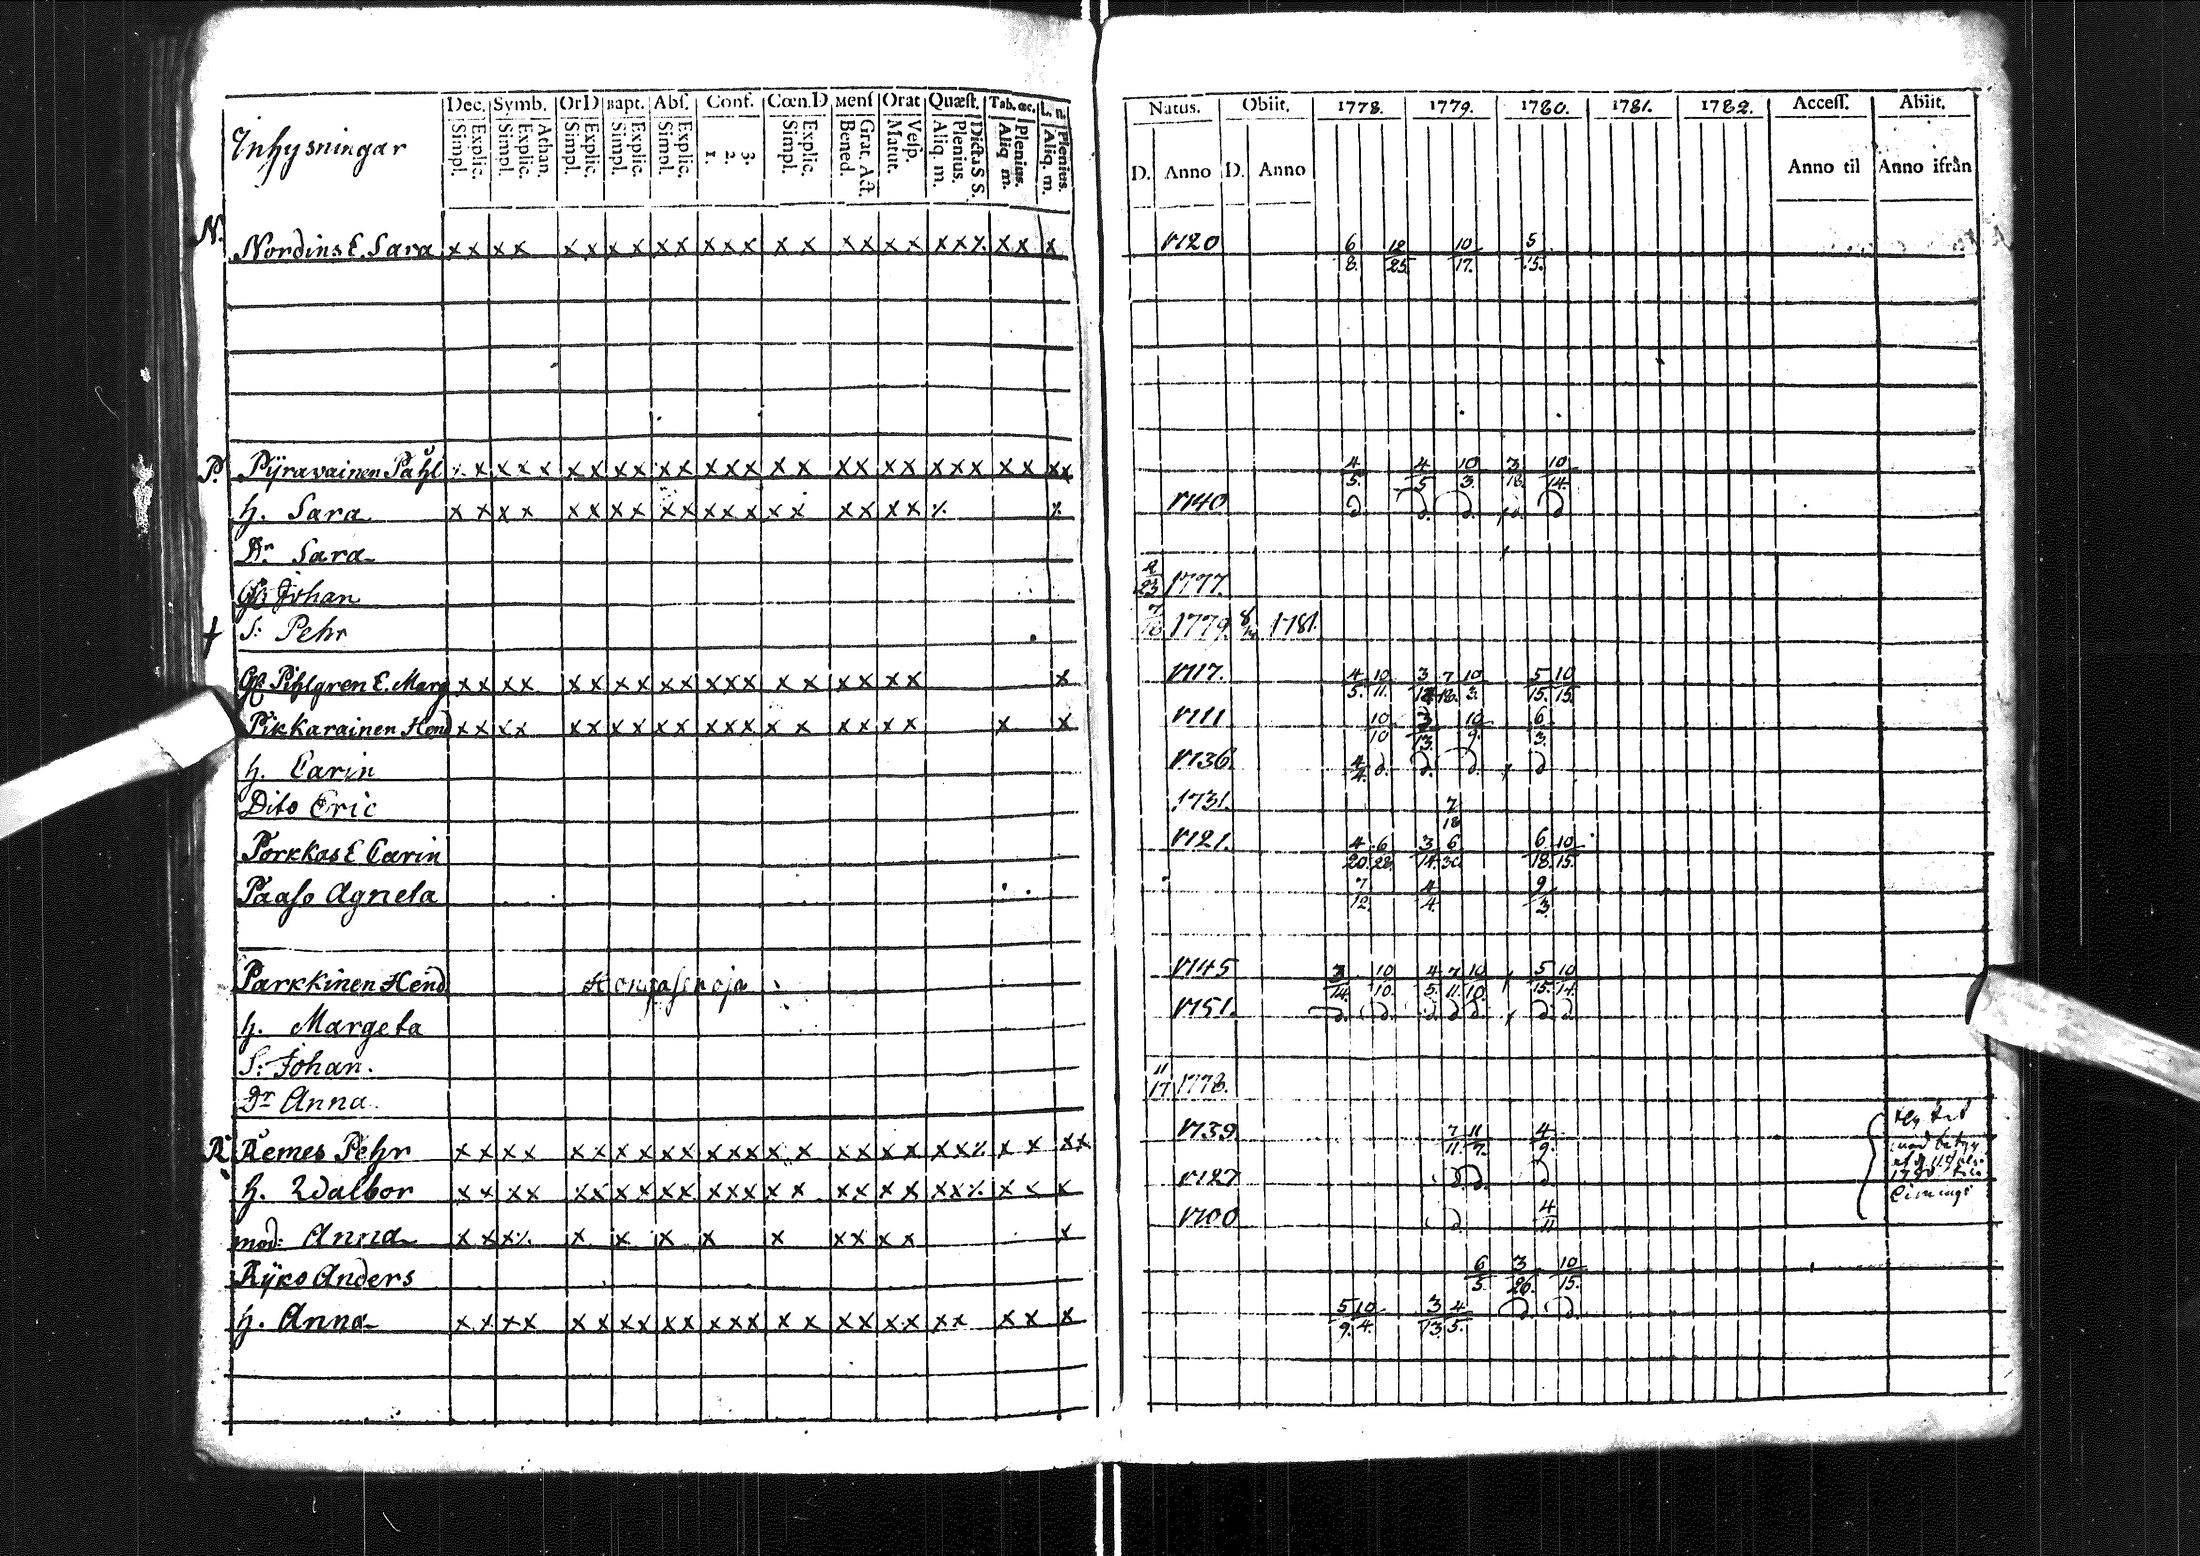 Inhysningar
Dec. Symb. OrD Bapt. Abs. Conf. Cœn.D Mens Orat Quæst. Tab. œc. L. n.
Simpl. Explic. Simpl. Explic. Athan. Simpl. Explic. Simpl. Explic. Simpl. Explic. 1. 2. 3. Simpl. Explic. Bened. Grat. Act. Matut. Vesp. Aliq. m. Plenius. Dicta S S. Aliq. m. Plenius. Aliq. m. Plenius.
Natus. Obiit. 1778. 1779. 1780. 1781. 1782. Access. Abiit.
D. Anno D. Anno Anno til Anno ifrån
N.
Nordins E. Sara x x x x x x x x x x x x x x x x x x x x x x ٪ x x x 1720 6/8. 12/25. 10/17. 5/15.
P.
Pÿravainen Påhl x x x x x x x x x x x x x x x x x x x x x x x x x x x 4/5. 4/5 10/3. 10/14.
h. Sara x x x x x x x x x x x x x x x x x x x ٪ ٪ 1740 d. d. d. d. d
Dr. Sara
Johan 1777.
† S: Pehr 1779. 1781.
Pihlgren E. Marg x x x x x x x x x x x x x x x x x x x x 1717. 4/5. 10/11. 3/12 7/18. 10/3. 5/15. 10/15.
Pikkarainen Hend x x x x x x x x x x x x x x x x x x x x x 1711 10/10 3/13. 10/9. 6/3.
h. Carin 1736. 4/4. d. d. d. d
Dito Eric 1731. 7/18
Porkkas E Carin 1721. 4/20. 6/28. 3/14. 6/30. 6/18. 10/15.
Paaso Agneta 7/12. 4/4. 9/3.
Parkkinen Hend 1745 10/10. 4/5. 7/11. 10/10. 5/15. 10/14.
h. Margeta 1751. d. d. d. d. d. d d
S: Johan.
Dr Anna 11/17 1778.
R.
Remes Pehr x x x x x x x x x x x x x x x x x x x x x ٪ x x x x 1739. 7/11. 11/7. 4/9.
h. Walbor x x x x x x x x x x x x x x x x x x x x x ٪ x x x 1727 d. d. d.
mod: Anna x x x ٪ x x x x x x x x x x 1700 d. 4/11
Rÿko Anders 6/5. 3/26. 10/15.
h. Anna x x x x x x x x x x x x x x x x x x x x x x x x 5/9. 10/4. 3/13. 4/5. d. d.